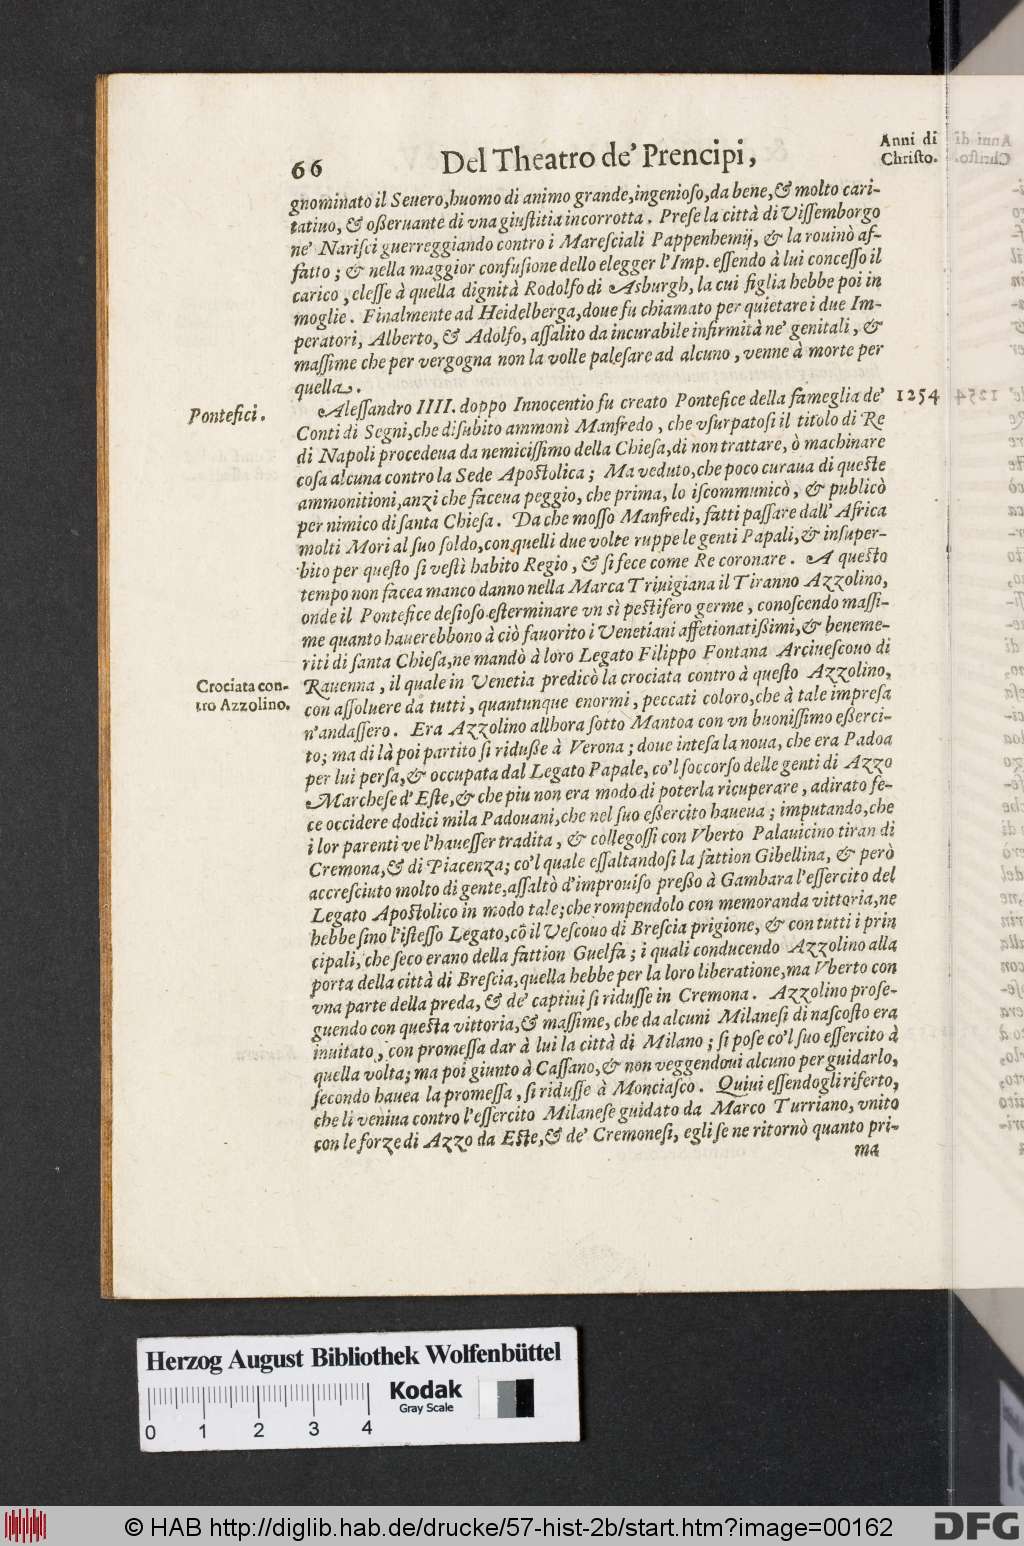 66
Del Theatro de' Prencipi,
Anni di
Christo.
gnominato il Seuero,huomo di animo grande,ingenioso,da bene,& molto cari-
tatiuo, & osseruante di vna giustitia incorrotta. Prese la città di Vissemborgo
ne' Narisci guerreggiando contro i Maresciali Pappenhemij, & la rouinò af-
fatto; & nella maggior confusione dello elegger l'Imp. essendo à lui concesso il
carico, elesse à quella dignità Rodolfo di Asburgh, la cui figlia hebbe poi in
moglie. Finalmente ad Heidelberga,doue fu chiamato per quietare i due Im-
peratori, Alberto, & Adolfo, assalito da incurabile infirmità ne' genitali, &
massime che per vergogna non la volle palesare ad alcuno, venne à morte per
quella.
Pontefici.
Alessandro IIII. doppo Innocentio fu creato Pontefice della fameglia de'
1254
Conti di Segni,che disubito ammonì Manfredo, che vsurpatosi il titolo di Re
di Napoli procedeua da nemicissimo della Chiesa,di non trattare, ò machinare
cosa alcuna contro la Sede Apostolica; Ma veduto,che poco curaua di queste
ammonitioni,anzi che faceua peggio, che prima, lo iscommunicò, & publicò
per nimico di santa Chiesa. Da che mosso Manfredi, fatti passare dall' Africa
molti Mori al suo soldo,con quelli due volte ruppe le genti Papali,& insuper-
bito per questo si vestì habito Regio, & si fece come Re coronare. A questo
tempo non facea manco danno nella Marca Triuigiana il Tiranno Azzolino,
onde il Pontefice desioso esterminare vn sì pestifero germe, conoscendo massi-
me quanto hauerebbono à ciò fauorito i Venetiani affetionatissimi,& beneme-
riti di santa Chiesa,ne mandò à loro Legato Filippo Fontana Arciuescouo di
Crociata con-
tro Azzolino.
Rauenna, il quale in Venetia predicò la crociata contro à questo Azzolino,
con assoluere da tutti, quantunque enormi, peccati coloro,che à tale impresa
n'andassero. Era Azzolino allhora sotto Mantoa con vn buonissimo esserci-
to; ma di là poi partito si ridusse à Verona; doue intesa la noua, che era Padoa
per lui persa,& occupata dal Legato Papale, co'l soccorso delle genti di Azzo
Marchese d'Este,& che piu non era modo di poterla ricuperare, adirato fe-
ce occidere dodici mila Padouani,che nel suo essercito haueua; imputando,che
i lor parenti ve l'hauesser tradita, & collegossi con Vberto Palauicino tiran di
Cremona,& di Piacenza; co'l quale essaltandosi la fattion Gibellina, & però
accresciuto molto di gente,assaltò d'improuiso presso à Gambara l'essercito del
Legato Apostolico in modo tale;che rompendolo con memoranda vittoria,ne
hebbe sino l'istesso Legato,cō il Vescouo di Brescia prigione, & con tutti i prin
cipali, che seco erano della fattion Guelfa; i quali conducendo Azzolino alla
porta della città di Brescia,quella hebbe per la loro liberatione,ma Vberto con
vna parte della preda, & de' captiui si ridusse in Cremona. Azzolino prose-
guendo con questa vittoria,& massime, che da alcuni Milanesi di nascosto era
inuitato, con promessa dar à lui la città di Milano; si pose co'l suo essercito à
quella volta; ma poi giunto à Cassano,& non veggendoui alcuno per guidarlo,
secondo hauea la promessa, si ridusse à Monciasco. Quiui essendogli riferto,
che li veniua contro l'essercito Milanese guidato da Marco Turriano, vnito
con le forze di Azzo da Este,& de' Cremonesi, egli se ne ritornò quanto pri-
ma
Herzog August Bibliothek Wolfenbüttel
Kodak
Gray Scale
0 1 2 3 4
© HAB http://diglib.hab.de/drucke/57-hist-2b/start.htm?image=00162
DFG